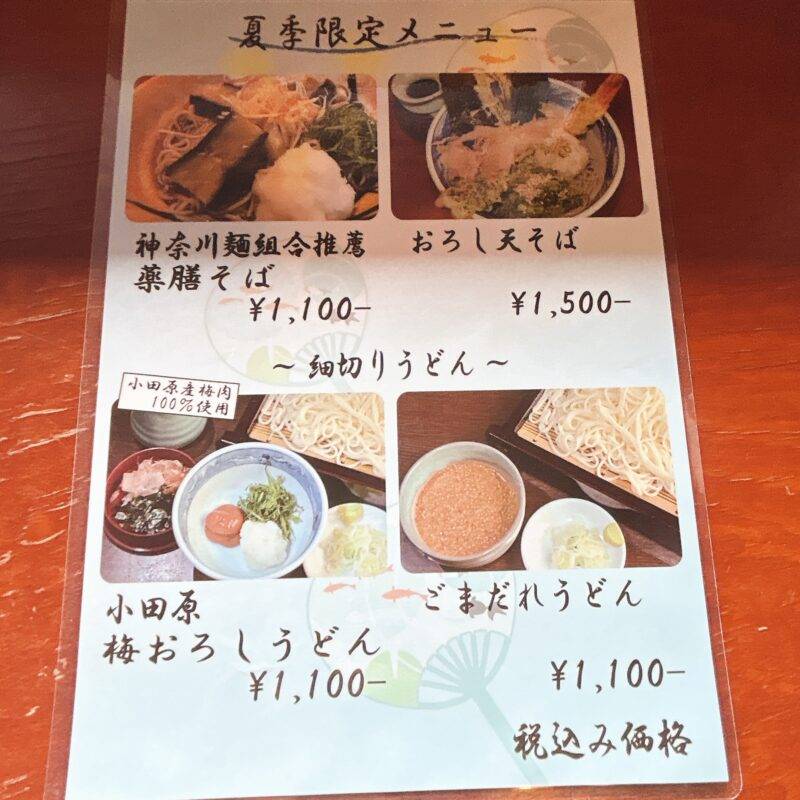 夏季限定メニュー
神奈川麺組合推薦
薬膳そば
¥1,100−
おろし天そば
¥1,500−
～細切りうどん～
小田原産梅肉
100%使用
小田原
梅おろしうどん
¥1,100−
ごまだれうどん
¥1,100−
税込み価格